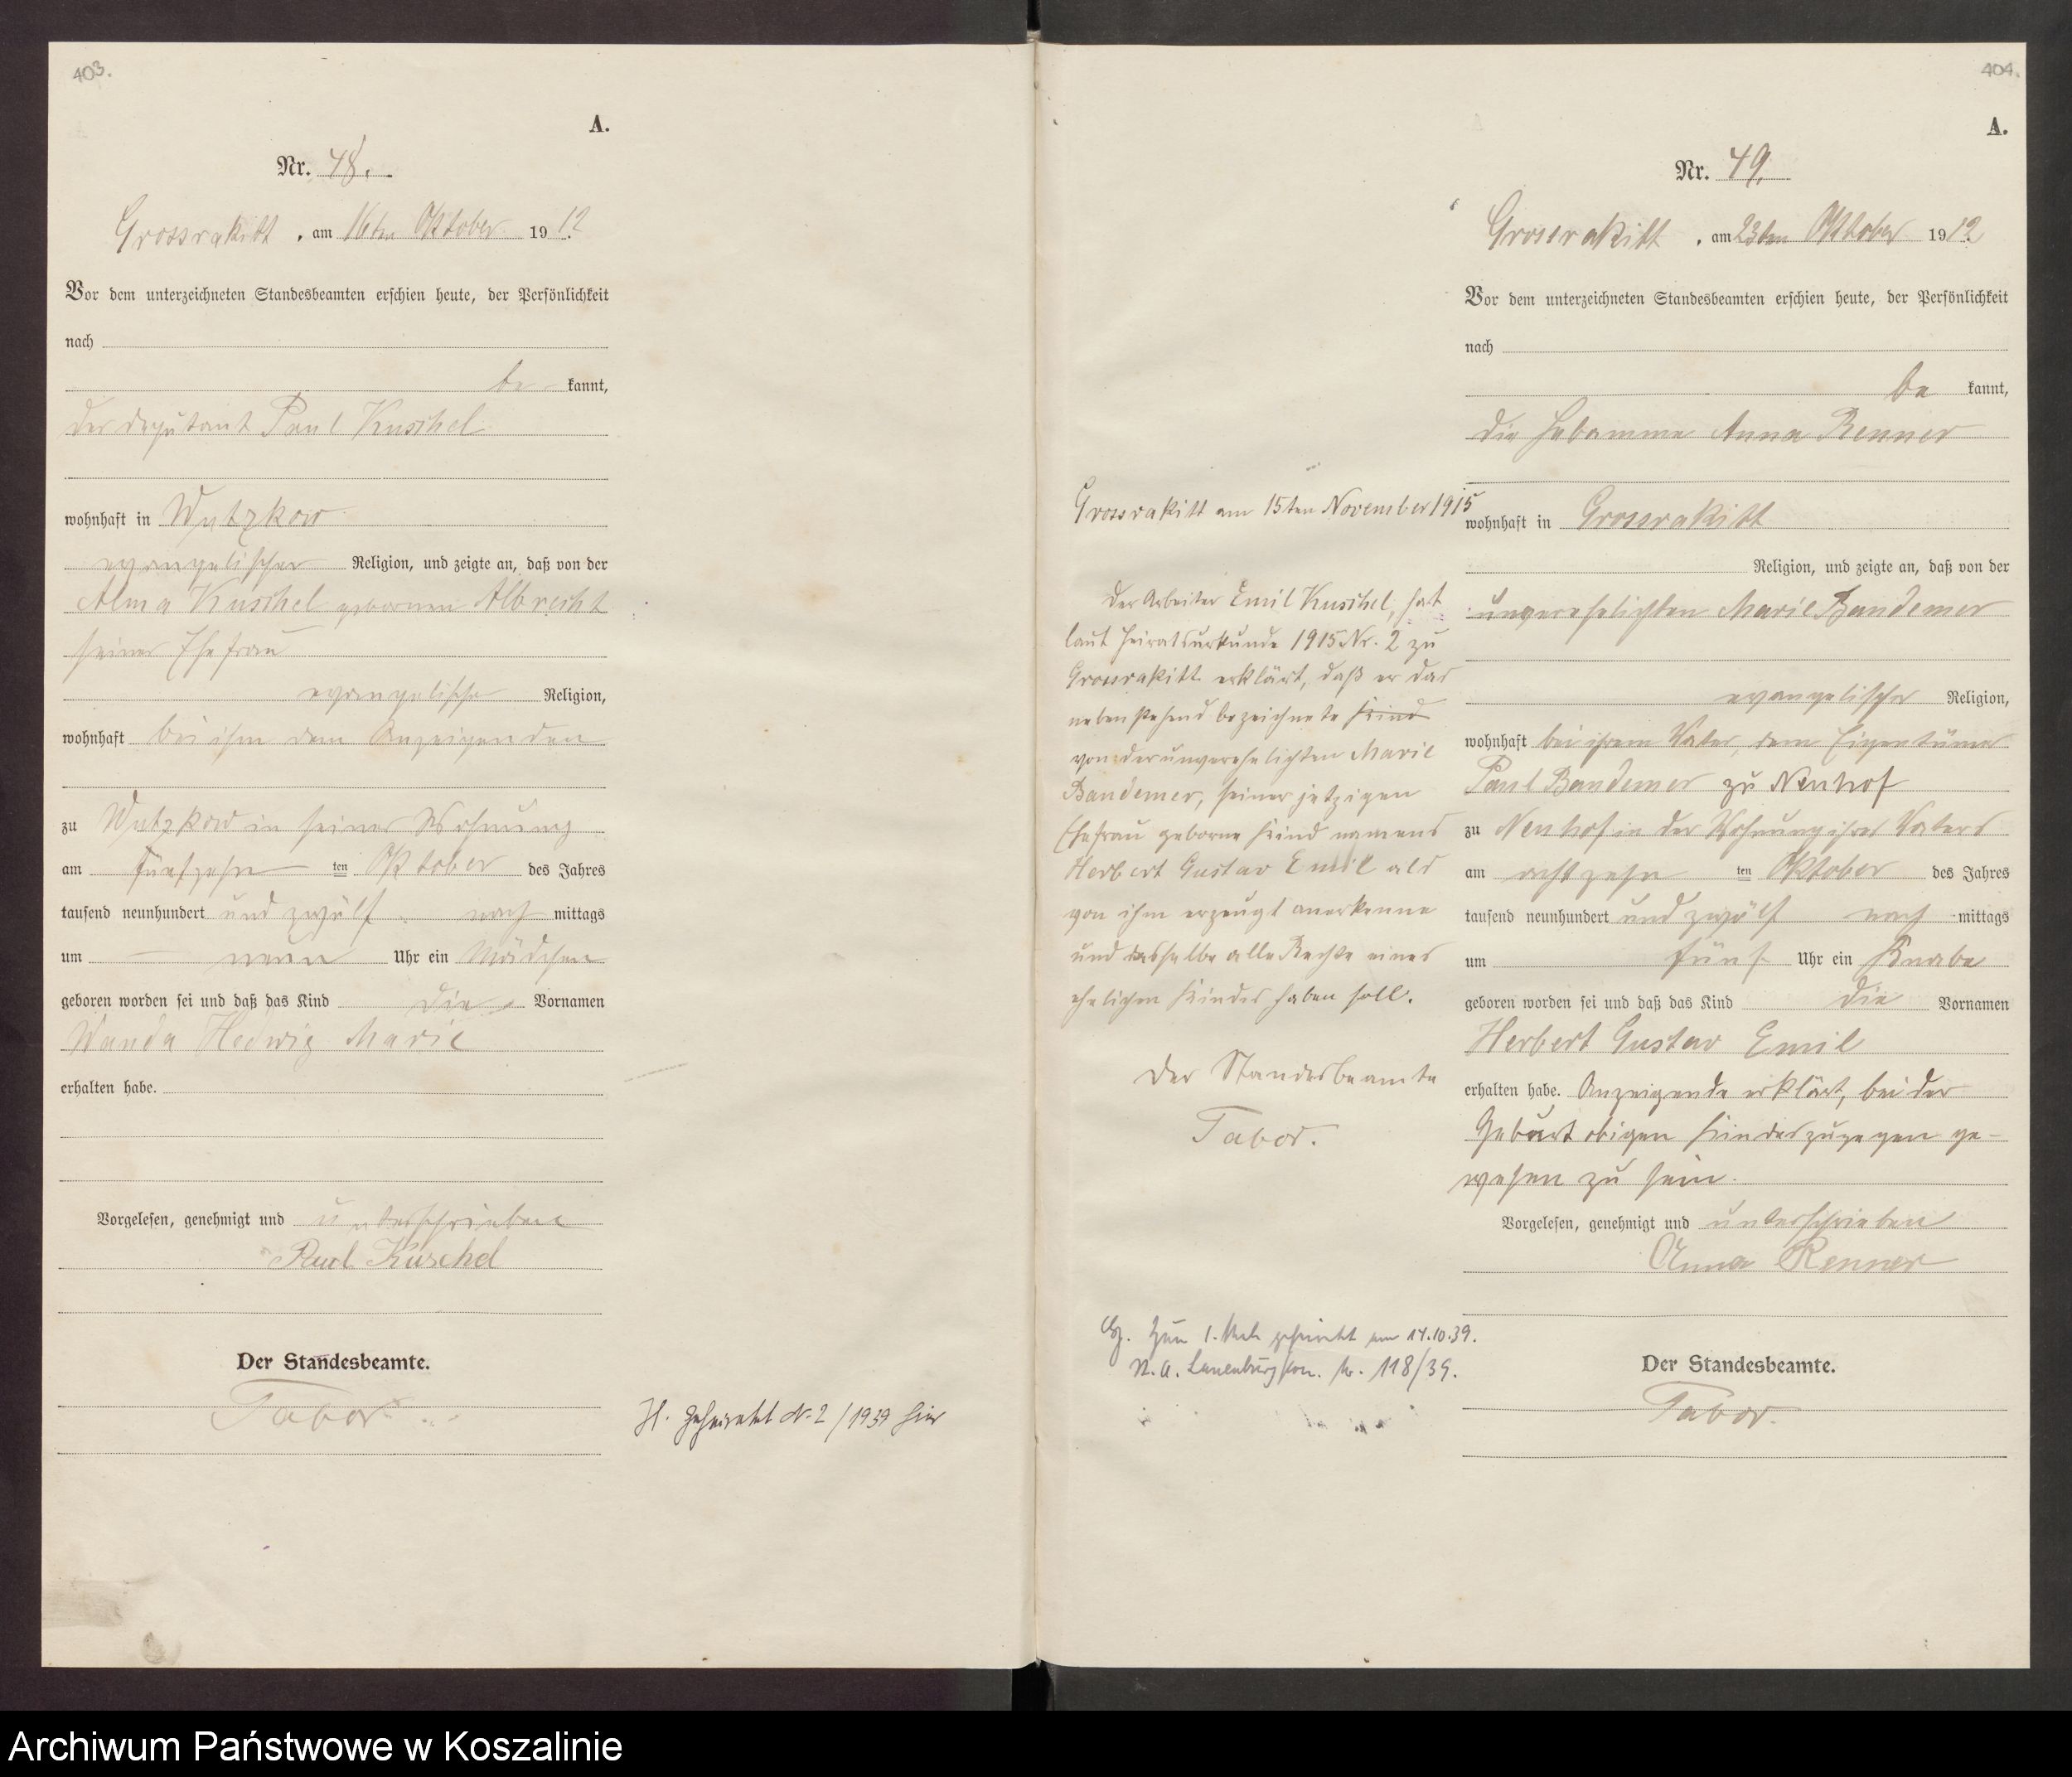 403.
A.
Nr. 48.
Grossrakitt, am 16ten Oktober 1912.
Vor dem unterzeichneten Standesbeamten erschien heute, der Persönlichkeit
nach
be kannt,
der Deputant Paul Kuschel
wohnhaft in Wutzkow
evangelischer Religion, und zeigte an, daß von der
Alma Kuschel geborenen Albrecht
seiner Ehefrau
evangelischer Religion,
wohnhaft bei ihm dem Anzeigenden
zu Wutzkow in seiner Wohnung
am fünfzehn ten Oktober des Jahres
tausend neunhundert und zwölf nach mittags
um neun Uhr ein Mädchen
geboren worden sei und daß das Kind die Vornamen
Wanda Hedwig Marie
erhalten habe.
Vorgelesen, genehmigt und unterschrieben
Paul Kuschel
Der Standesbeamte.
Tabor.
H. Geheiratet Nr. 2/1939 hier
404.
A.
Nr. 49.
Grossrakitt, am 23ten Oktober 1912.
Vor dem unterzeichneten Standesbeamten erschien heute, der Persönlichkeit
nach
be kannt,
die Hebamme Anna Renner
wohnhaft in Grossrakitt
Religion, und zeigte an, daß von der
unverehelichten Marie Bandemer
evangelischer Religion,
wohnhaft bei ihrem Vater, dem Eigentümer
Paul Bandemer zu Neuhof
zu Neuhof in der Wohnung ihres Vaters
am achtzehn ten Oktober des Jahres
tausend neunhundert und zwölf nach mittags
um fünf Uhr ein Knabe
geboren worden sei und daß das Kind die Vornamen
Herbert Gustav Emil
erhalten habe. Anzeigende erklärt, bei der
Geburt obigen Kindes zugegen ge-
wesen zu sein.
Vorgelesen, genehmigt und unterschrieben
Anna Renner
Der Standesbeamte.
Tabor.
Grossrakitt am 15ten November 1915
Der Arbeiter Emil Kuschel, hat
laut Heiratsurkunde 1915 Nr. 2 zu
Grossrakitt erklärt, daß er das
nebenstehend bezeichnete Kind
von der unverehelichten Marie
Bandemer, seiner jetzigen
Ehefrau geborne Kind namens
Herbert Gustav Emil als
von ihm erzeugt anerkenne
und dasselbe alle Rechte eines
ehelichen Kindes haben soll.
Der Standesbeamte
Tabor.
Zum 1. Mal geheiratet am 14.10.39.
St. A. Lauenburg Pom. Nr. 118/39.
Archiwum Państwowe w Koszalinie